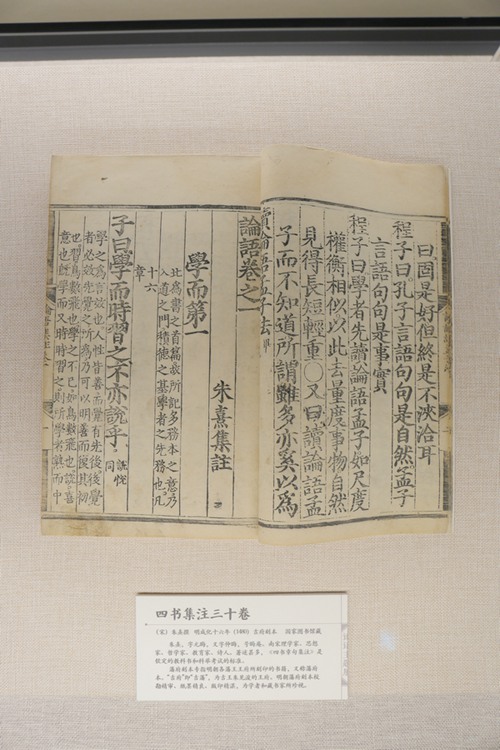 曰固是好但終是不浹洽耳
程子曰孔子言語句句是自然孟子
言語句句是事實
程子曰學者先讀論語孟子如尺度
權衡相似以此去量度事物自然
見得長短輕重〇又曰讀論語孟
子而不知道所謂雖多亦奚以為
讀論語孟子法
論語卷之一
朱熹集註
學而第一
此為書之首篇故所記多務本之意乃
入道之門積德之基學者之先務也凡
十六
章
子曰學而時習之不亦說乎
說悅
同
學之為言效也人性皆善而覺有先後後覺
者必效先覺之所為乃可以明善而復其初
也習鳥數飛也學之不已如鳥數飛也說喜
意也既學而又時時習之則所學者熟而中
四书集注三十卷
（宋）朱熹撰 明成化十六年（1480）吉府刻本 国家图书馆藏
朱熹，字元晦，又字仲晦，号晦庵，南宋理学家、思想
家、哲学家、教育家、诗人。著述甚多，《四书章句集注》是
钦定的教科书和科举考试的标准。
藩府刻本专指明朝各藩王府所刻印的书籍，又称藩府
本。“吉府”即“吉藩”，为吉王朱见浚的王府。明朝藩府刻本校
勘精审、纸墨精良、版印精湛，为学者和藏书家所珍视。